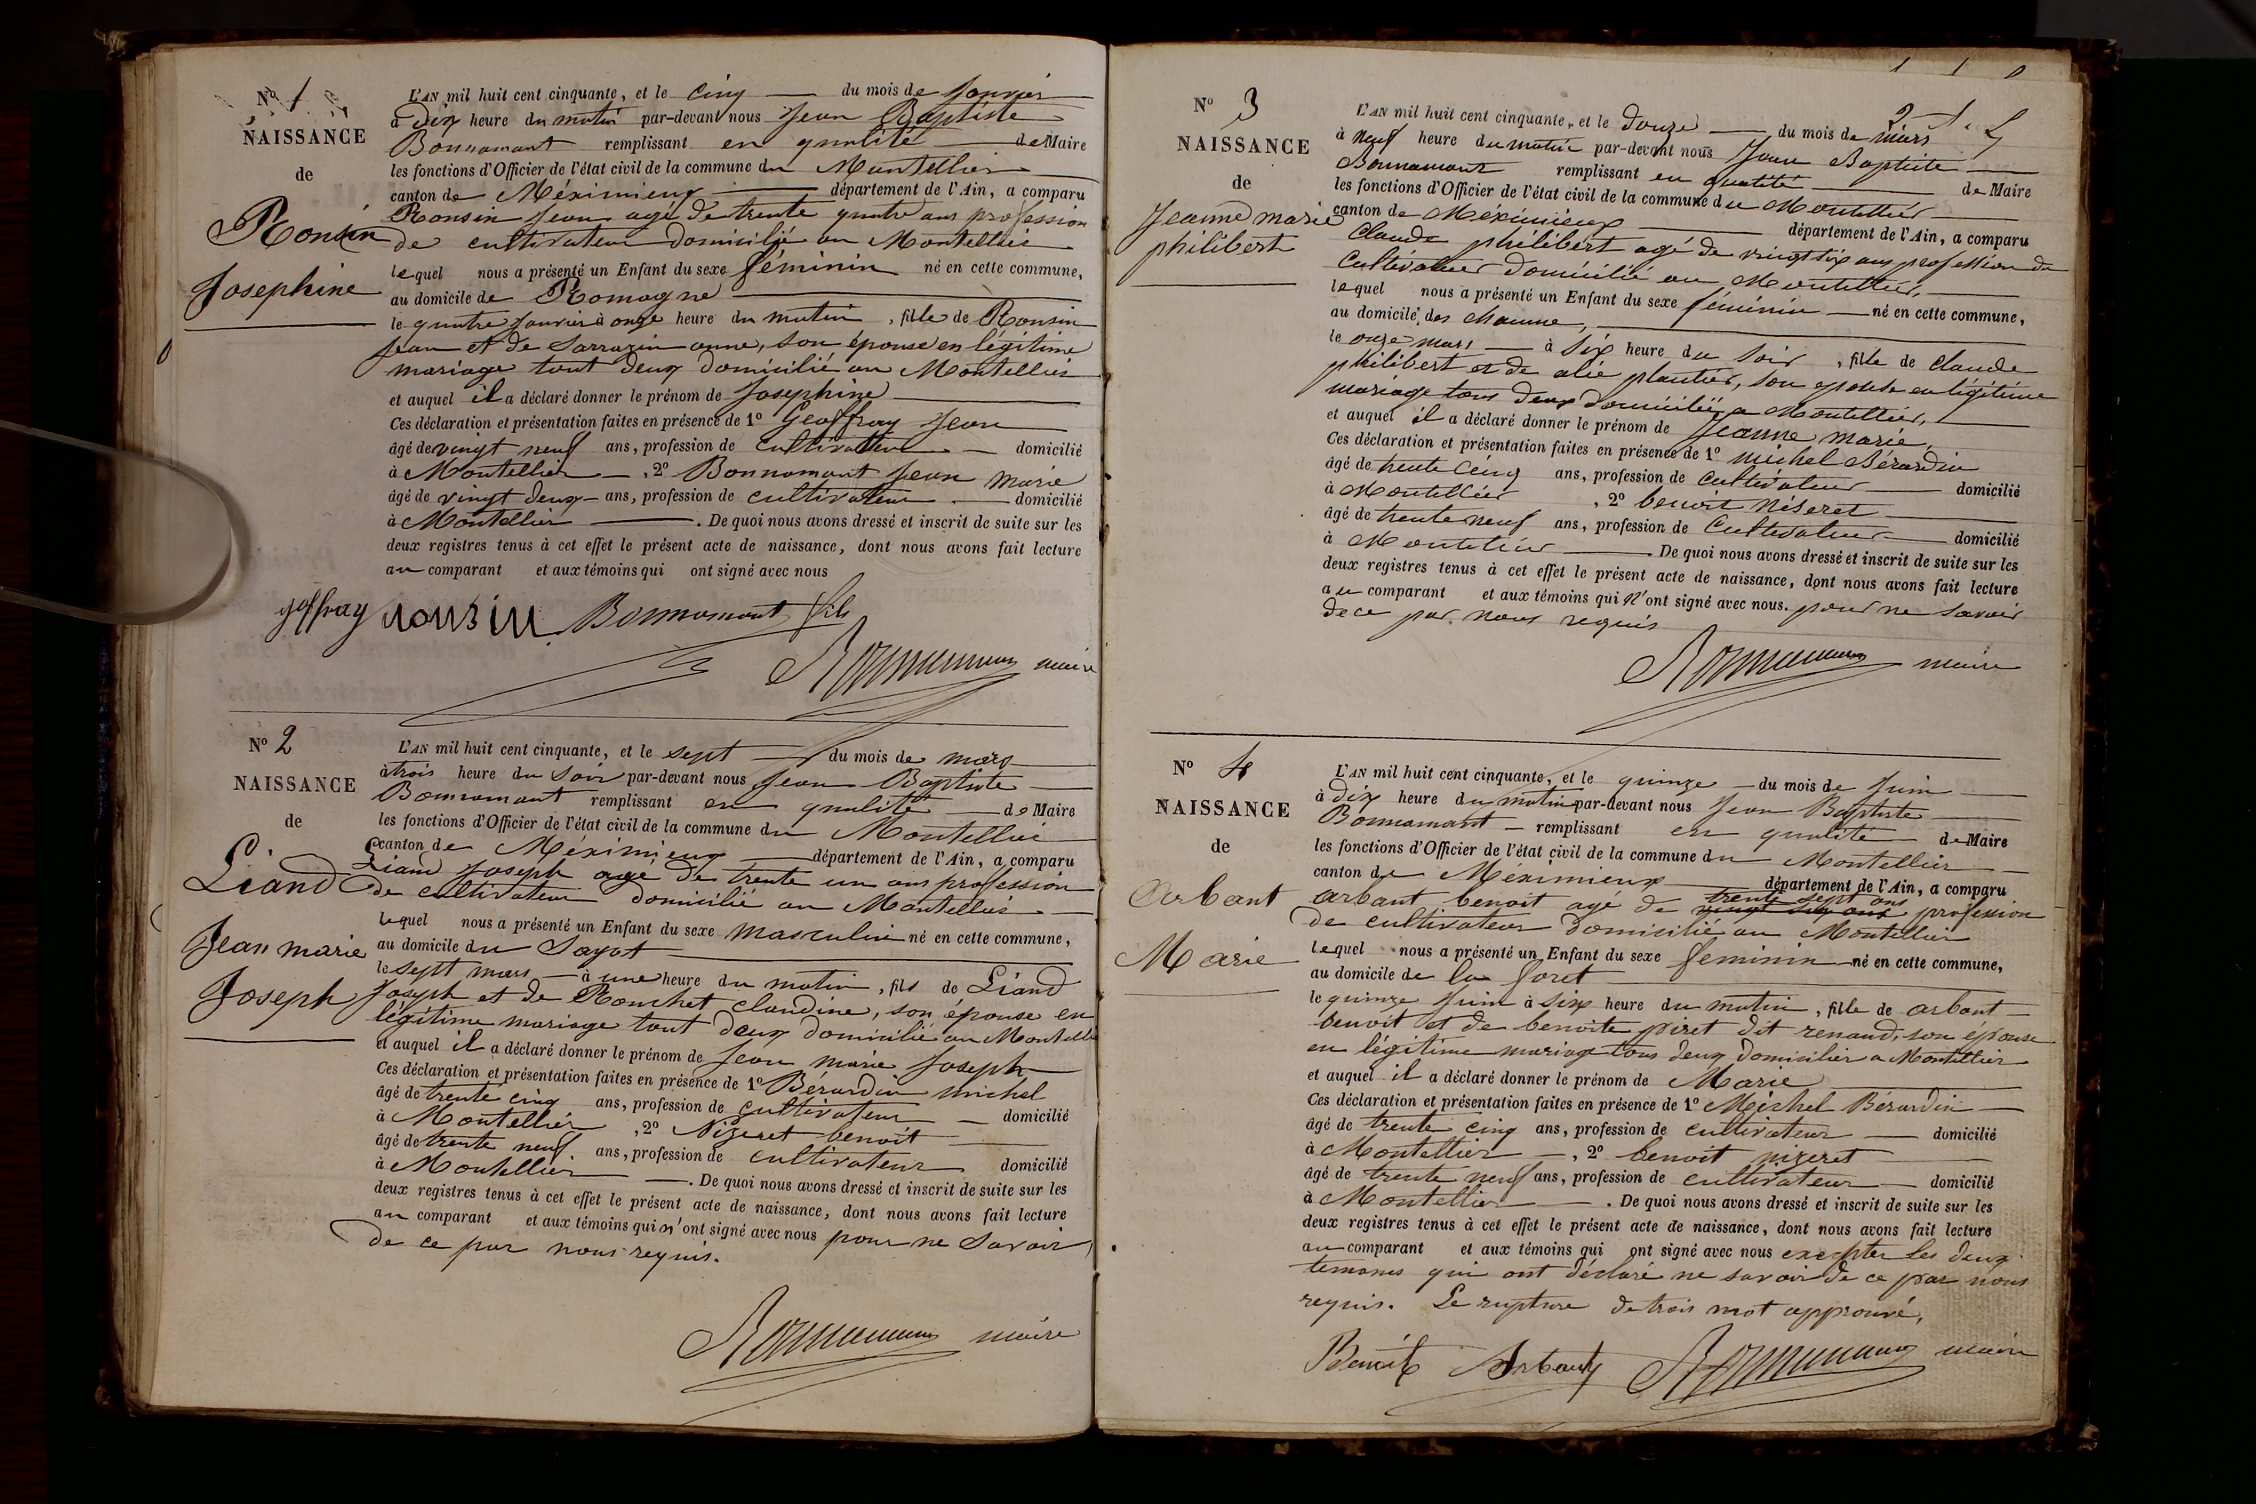 N° 1
NAISSANCE
de
Ronsin
Josephine
L'AN mil huit cent cinquante, et le cinq du mois de Janvier
à Dix heure du matin par-devant nous Jean Baptiste
Bonnamant remplissant en qualité de Maire
les fonctions d'Officier de l'état civil de la commune du Montellier
canton de Méximieux département de l'Ain, a comparu
Ronsin Jean agé de trente quatre ans profession
de cultivateur domicilié au Montellier
lequel nous a présenté un Enfant du sexe féminin né en cette commune,
au domicile de Romagne
le quatre Janvier à onze heure du matin, fille de Ronsin
Jean et de Sarrazin anne, son épouse en légitime
mariage tout deux domicilié au Montellier
et auquel il a déclaré donner le prénom de Josephine
Ces déclaration et présentation faites en présence de 1° Geoffray Jean
âgé de vingt neuf ans, profession de cultivateur domicilié
à Montellier, 2° Bonnamant Jean marie
âgé de vingt deux ans, profession de cultivateur domicilié
à Montellier. De quoi nous avons dressé et inscrit de suite sur les
deux registres tenus à cet effet le présent acte de naissance, dont nous avons fait lecture
au comparant et aux témoins qui ont signé avec nous
geffray ronsin Bonnamant fils
maire
N° 2
NAISSANCE
de
Liand
Jean marie
Joseph
L'AN mil huit cent cinquante, et le sept du mois de mars
à trois heure du soir par-devant nous Jean Baptiste
Bonnamant remplissant en qualité de Maire
les fonctions d'Officier de l'état civil de la commune du Montellier
canton de Méximieux département de l'Ain, a comparu
Liand Joseph agé de trente un ans profession
de cultivateur domicilié au Montellier
lequel nous a présenté un Enfant du sexe masculin né en cette commune,
au domicile du Sayot
le sept mars à une heure du matin, fils de Liand
Joseph et de Rouchet claudine, son épouse en
légitime mariage tout deux domicilié au Montellier
et auquel il a déclaré donner le prénom de Jean marie Joseph
Ces déclaration et présentation faites en présence de 1° Bérardin michel
âgé de trente cinq ans, profession de cultivateur domicilié
à Montellier, 2° Nizeret benoit
âgé de trente neuf ans, profession de cultivateur domicilié
à Montellier. De quoi nous avons dressé et inscrit de suite sur les
deux registres tenus à cet effet le présent acte de naissance, dont nous avons fait lecture
au comparant et aux témoins qui n'ont signé avec nous pour ne savoir
de ce par nous requis.
maire
N° 3
NAISSANCE
de
Jeanne marie
philibert
L'AN mil huit cent cinquante, et le douze du mois de mars
à neuf heure du matin par-devant nous Jean Baptiste
Bonnamant remplissant en qualité de Maire
les fonctions d'Officier de l'état civil de la commune du Montellier
canton de Méximieux département de l'Ain, a comparu
Claude philibert agé de vingt six ans profession de
Cultivateur domicilié au Montellier,
lequel nous a présenté un Enfant du sexe féminin né en cette commune,
au domicile des chaume,
le onze mars à six heure du soir, fille de claude
philibert et de alié plantier, son epouse en légitime
mariage tous deux domicilié a Montellier,
et auquel il a déclaré donner le prénom de Jeanne marie,
Ces déclaration et présentation faites en présence de 1° michel Bérardin
âgé de trente Cinq ans, profession de Cultivateur domicilié
à Montellier, 2° benoit néseret
âgé de trente neuf ans, profession de Cultivateur domicilié
à Montellier De quoi nous avons dressé et inscrit de suite sur les
deux registres tenus à cet effet le présent acte de naissance, dont nous avons fait lecture
au comparant et aux témoins qui n'ont signé avec nous. pour ne savoir
de ce par nous requis
maire
N° 4
NAISSANCE
de
Arbant
Marie
L'AN mil huit cent cinquante, et le quinze du mois de Juin
à Dix heure du matin par-devant nous Jean Baptiste
Bonnamant remplissant en qualité de Maire
les fonctions d'Officier de l'état civil de la commune du Montellier
canton de Méximieux département de l'Ain, a comparu
trente sept ans
arbant benoit agé de vingt six ans profession
de cultivateur domicilié au Montellier
lequel nous a présenté un Enfant du sexe feminin né en cette commune,
au domicile de la foret
le quinze Juin à six heure du matin, fille de arbant
benoit et de benoite piret dit renaud, son épouse
en légitime mariage tous deux domicilier a Montellier
et auquel il a déclaré donner le prénom de Marie
Ces déclaration et présentation faites en présence de 1° Michel Bérardin
âgé de trente cinq ans, profession de cultivateur domicilié
à Montellier, 2° benoit nizeret
âgé de trente neuf ans, profession de cultivateur domicilié
à Montellier. De quoi nous avons dressé et inscrit de suite sur les
deux registres tenus à cet effet le présent acte de naissance, dont nous avons fait lecture
au comparant et aux témoins qui ont signé avec nous excepter les deux
temoins qui ont déclaré ne savoir de ce par nous
requis. Le rupture de trois mot approuvé,
Benoit Arbant maire